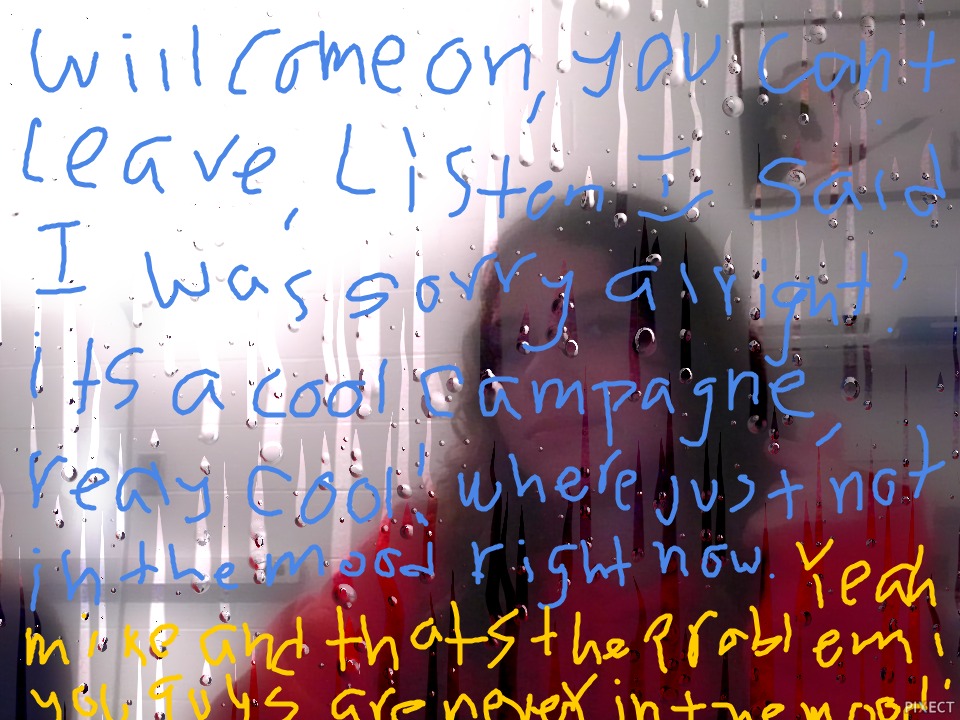 Will come on, you can't
Leave, Listen I said
I was sorry alright?
its a cool campagne,
realy cool! where just not
in the mood right now. Yeah
mike and thats the problem!
you guys are never in the mood!
PIXECT